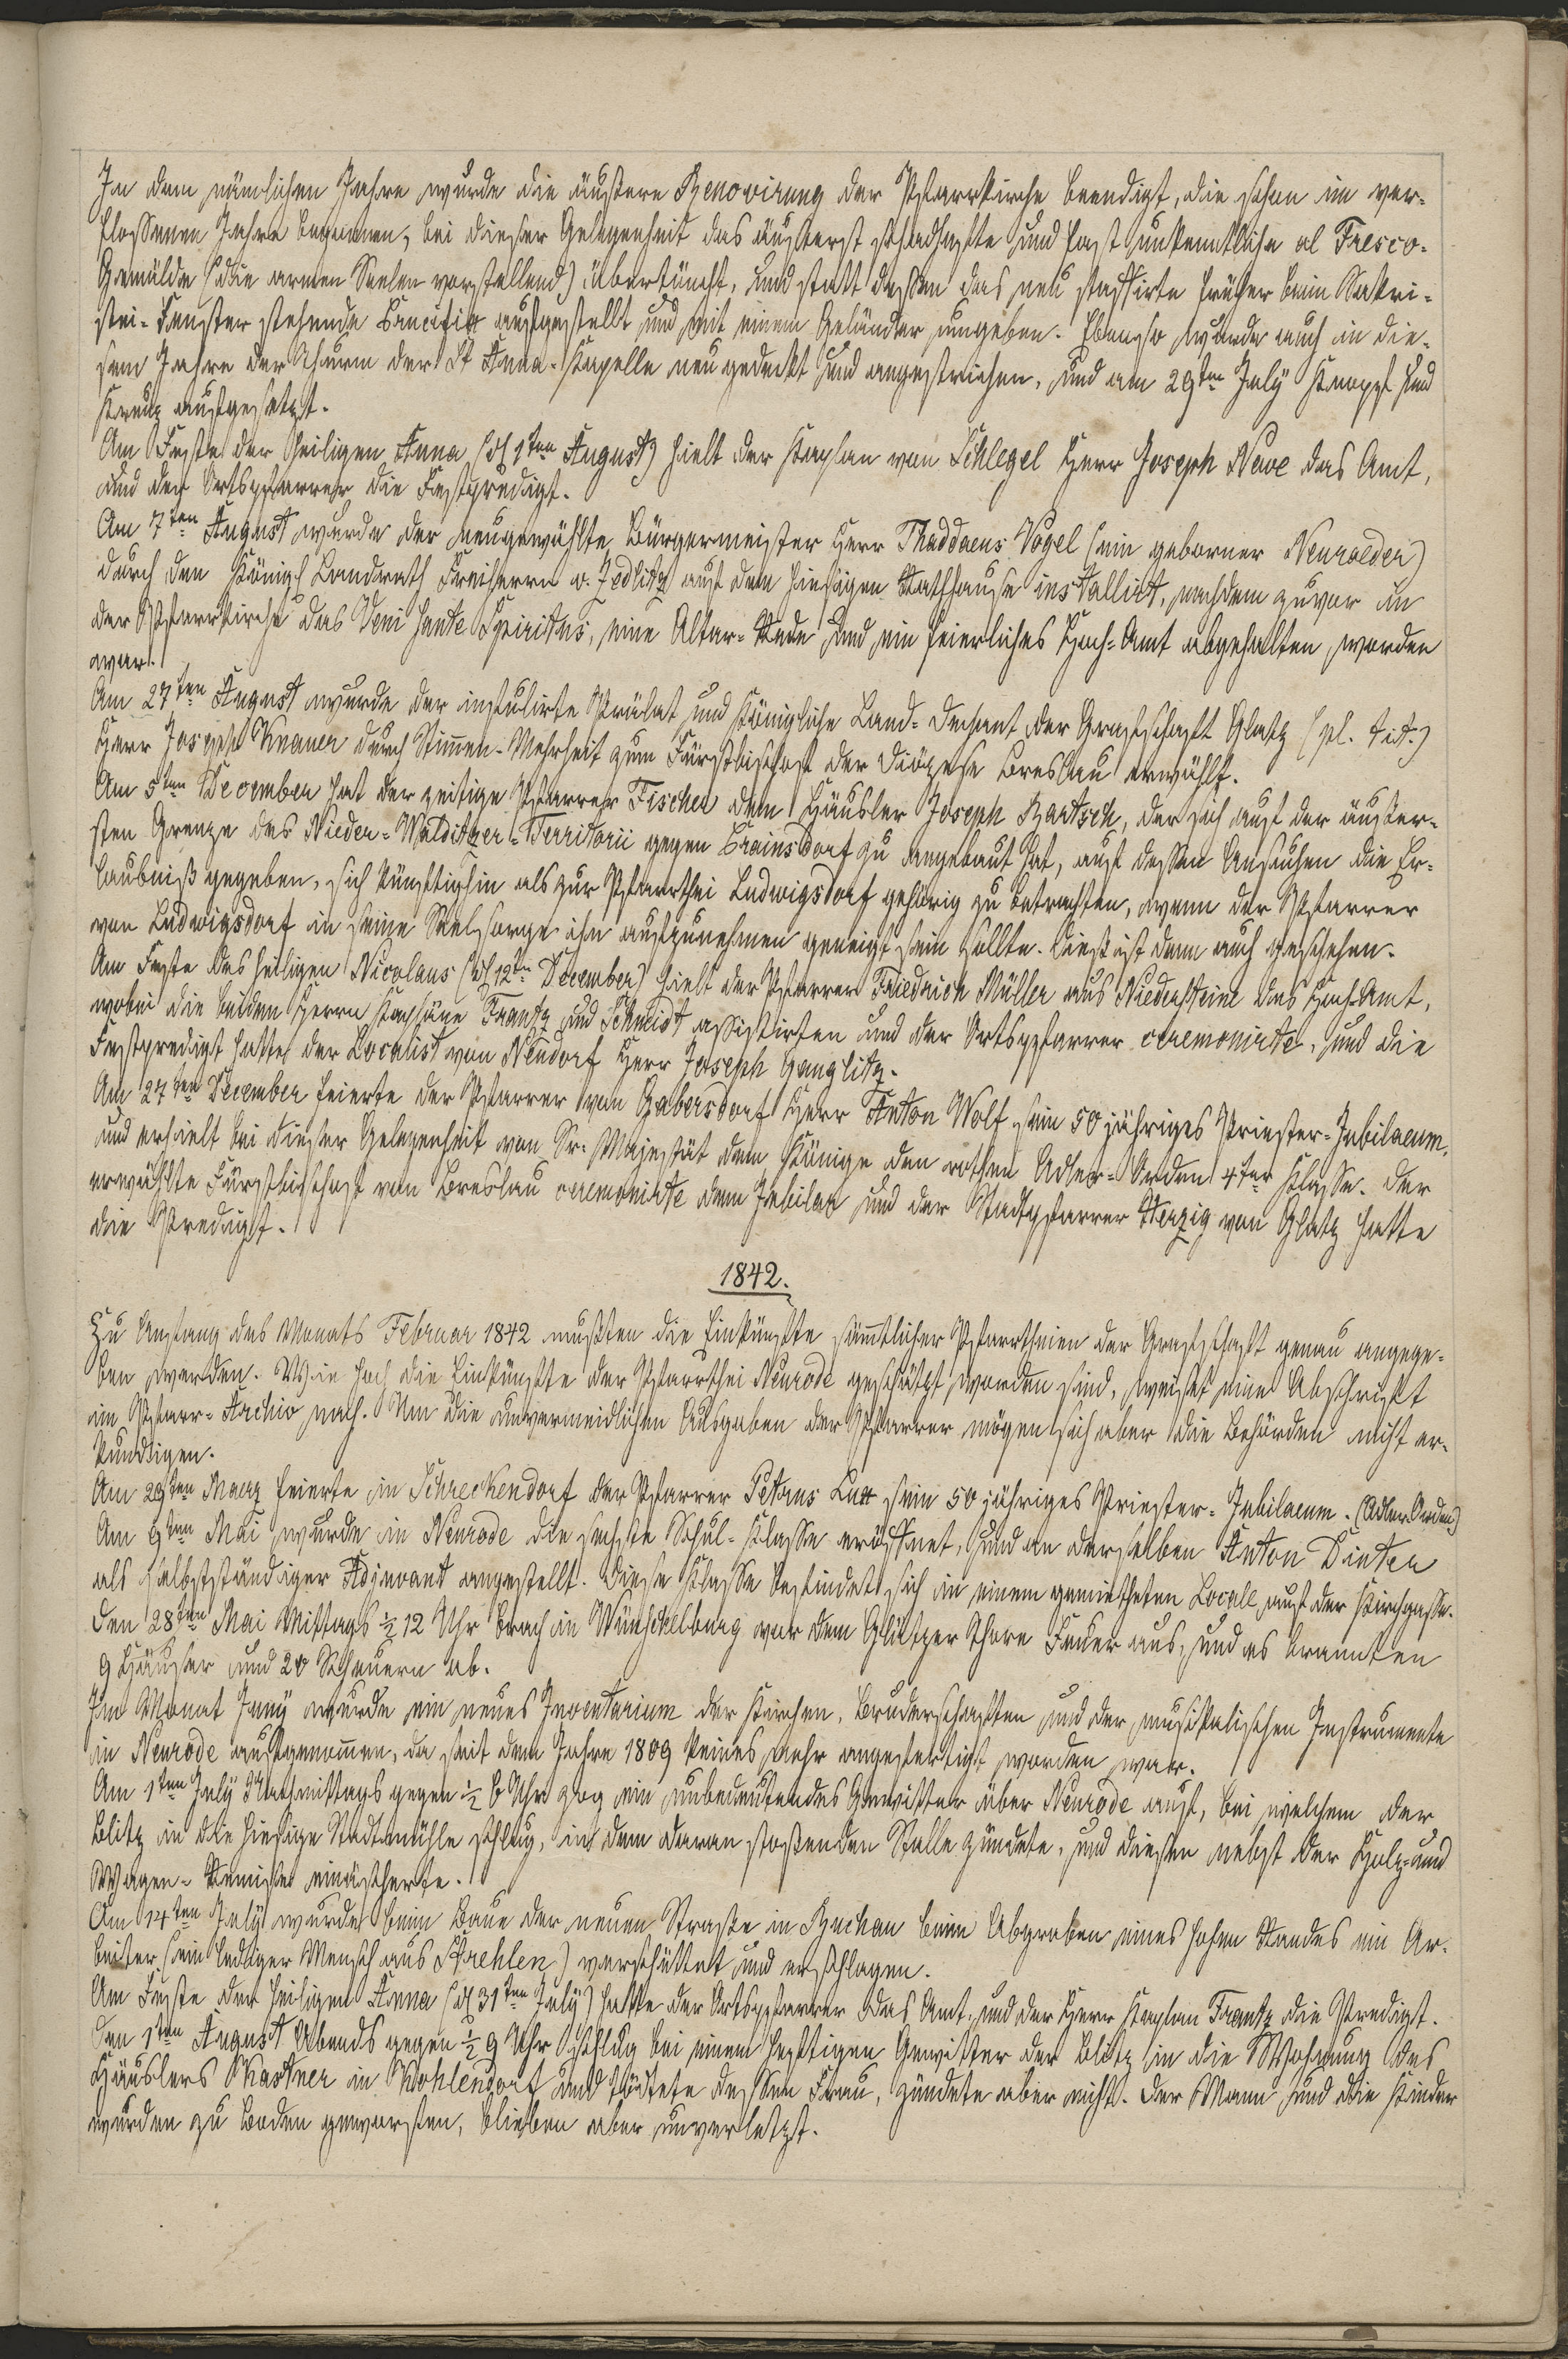 In dem nämlichen Jahre wurde die äußere Renovirung der Pfarrkirche beendigt, die schon im ver-
floßenen Jahre begonnen, bei dieser Gelegenheit das äußerst schadhafte und fast unkenntliche al Fresco-
Gemälde (die armen Seelen vorstellend) übertüncht, und statt deßen das neu staffirte früher beim Sakri-
stei-Fenster stehende Crucifix aufgestellt und mit einem Geländer umgeben. Ebenso wurde auch in die-
sem Jahre der Thurm der St Anna-Kapelle neu gedeckt und angestrichen, und am 29ten July Knopf und
Kreuz aufgesetzt.
Am Feste der Heiligen Anna (d 1ten August) hielt der Kaplan von Schlegel Herr Joseph Neve das Amt,
und der Ortspfarrer die Festpredigt.
Am 7ten August wurde der neugewählte Bürgermeister Herr Thaddaeus Vogel (ein geborner Neuroeder)
durch den Königl Landrath Freiherrn v. Zedlitz auf dem hiesigen Rathhause installirt, nachdem zuvor in
der Pfarrkirche das Veni sancte Spiritus, eine Altar-Rede und ein feierliches Hoch-Amt abgehalten worden
war.
Am 27ten August wurde der infulirte Prälat und Königliche Land-Dechant der Grafschaft Glatz (pl. tit.)
Herr Joseph Knauer durch Stimmen-Mehrheit zum Fürstbischof der Diözese Breslau erwählt.
Am 5ten December hat der zeitige Pfarrer Fischer dem Häusler Joseph Bartsch, der sich auf der äußer-
sten Grenze des Nieder-Walditzer-Territorii gegen Crainsdorf zu angebaut hat, auf deßen Ansuchen die Er-
laubniß gegeben, sich künftighin als zur Pfarrthei Ludwigsdorf gehörig zu betrachten, wenn der Pfarrer
von Ludwigsdorf in seine Seelsorge ihn aufzunehmen geneigt sein sollte. Dieß ist denn auch geschehen.
Am Feste des heiligen Nicolaus (d 12ten December) hielt der Pfarrer Friedrich Müller aus Niedersteine das Hoch-Amt,
wobei die beiden Herrn Kapläne Frantz und Schmidt assistirten und der Ortspfarrer ceremonirte, und die
Festpredigt hatte der Localist von Neudorf Herr Joseph Ganglitz.
Am 27ten December feierte der Pfarrer von Gabersdorf Herr Anton Wolf sein 50 jähriges Priester-Jubilaeum,
und erhielt bei dieser Gelegenheit von Sr. Majestät dem Könige den rothen Adler-Orden 4ter Klasse. Der
erwählte Fürstbischof von Breslau ceremonirte dem Jubilar und der Stadtpfarrer Herzig von Glatz hatte
die Predigt.
1842.
Zu Anfang des Monats Februar 1842 mußten die Einkünfte sämmtlicher Pfarrtheien der Grafschaft genau angege-
ben werden. Wie hoch die Einkünfte der Pfarrthei Neurode geschätzt worden sind, weiset eine Abschrift
im Pfarr-Archiv nach. Um die unvermeidlichen Ausgaben der Pfarrer mögen sich aber die Behörden nicht er-
kundigen.
Am 29ten Maerz feierte in Schreckendorf der Pfarrer Petrus Lux sein 50 jähriges Priester-Jubilaeum. (Adler Orden)
Am 9ten Mai wurde in Neurode die sechste Schul-Klasse eröffnet, und an derselben Anton Dinter
als selbstständiger Adjuvant angestellt. Diese Klasse befindet sich in einem gemietheten Locale auf der Kirchgasse.
Den 28ten Mai Mittags ½ 12 Uhr brach in Wünschelburg vor dem Glatzer Thore Feuer aus, und es brannten
9 Häuser und 20 Scheuern ab.
Im Monat Juny wurde ein neues Inventarium der Kirchen, Bruderschaften und der musikalischen Instrumente
in Neurode aufgenommen, da seit dem Jahre 1809 keines mehr angefertigt worden war.
Am 1ten July Nachmittags gegen ½ 6 Uhr zog ein unbedeutendes Gewitter über Neurode auf, bei welchem der
Blitz in die hiesige Stadtmühle schlug, in dem daran stoßenden Stalle zündete, und diesen nebst der Holz- und
Wagen-Remise einäscherte.
Am 14ten July wurde beim Baue der neuen Straße in Buchau beim Abgraben eines hohen Randes ein Ar-
beiter (ein lediger Mensch aus Strehlen) verschüttet und erschlagen.
Am Feste der heiligen Anna (d 31ten July) hatte der Ortspfarrer das Amt, und der Herr Kaplan Frantz die Predigt.
Den 1ten August Abends gegen ½ 9 Uhr schlug bei einem heftigen Gewitter der Blitz in die Wohnung des
Häuslers Kastner in Kohlendorf und tödtete deßen Frau, zündete aber nicht. Der Mann und die Kinder
wurden zu Boden geworfen, blieben aber unverletzt.